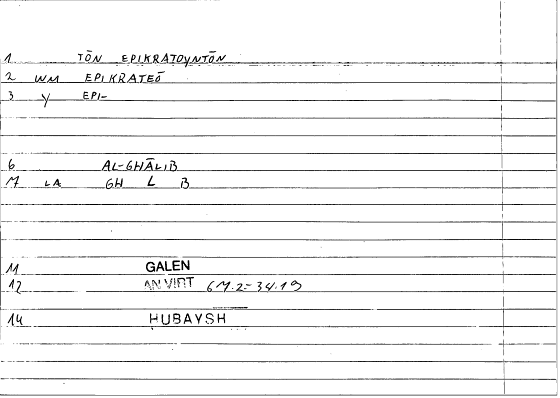 1 TŌN EPIKRATOYNTŌN
2 WM EPIKRATEŌ
3 Y EPI-
6 AL-GHĀLIB
7 LA GH L B
11 GALEN
12 AN VIRT 67.2=34.19
14 HUBAYSH